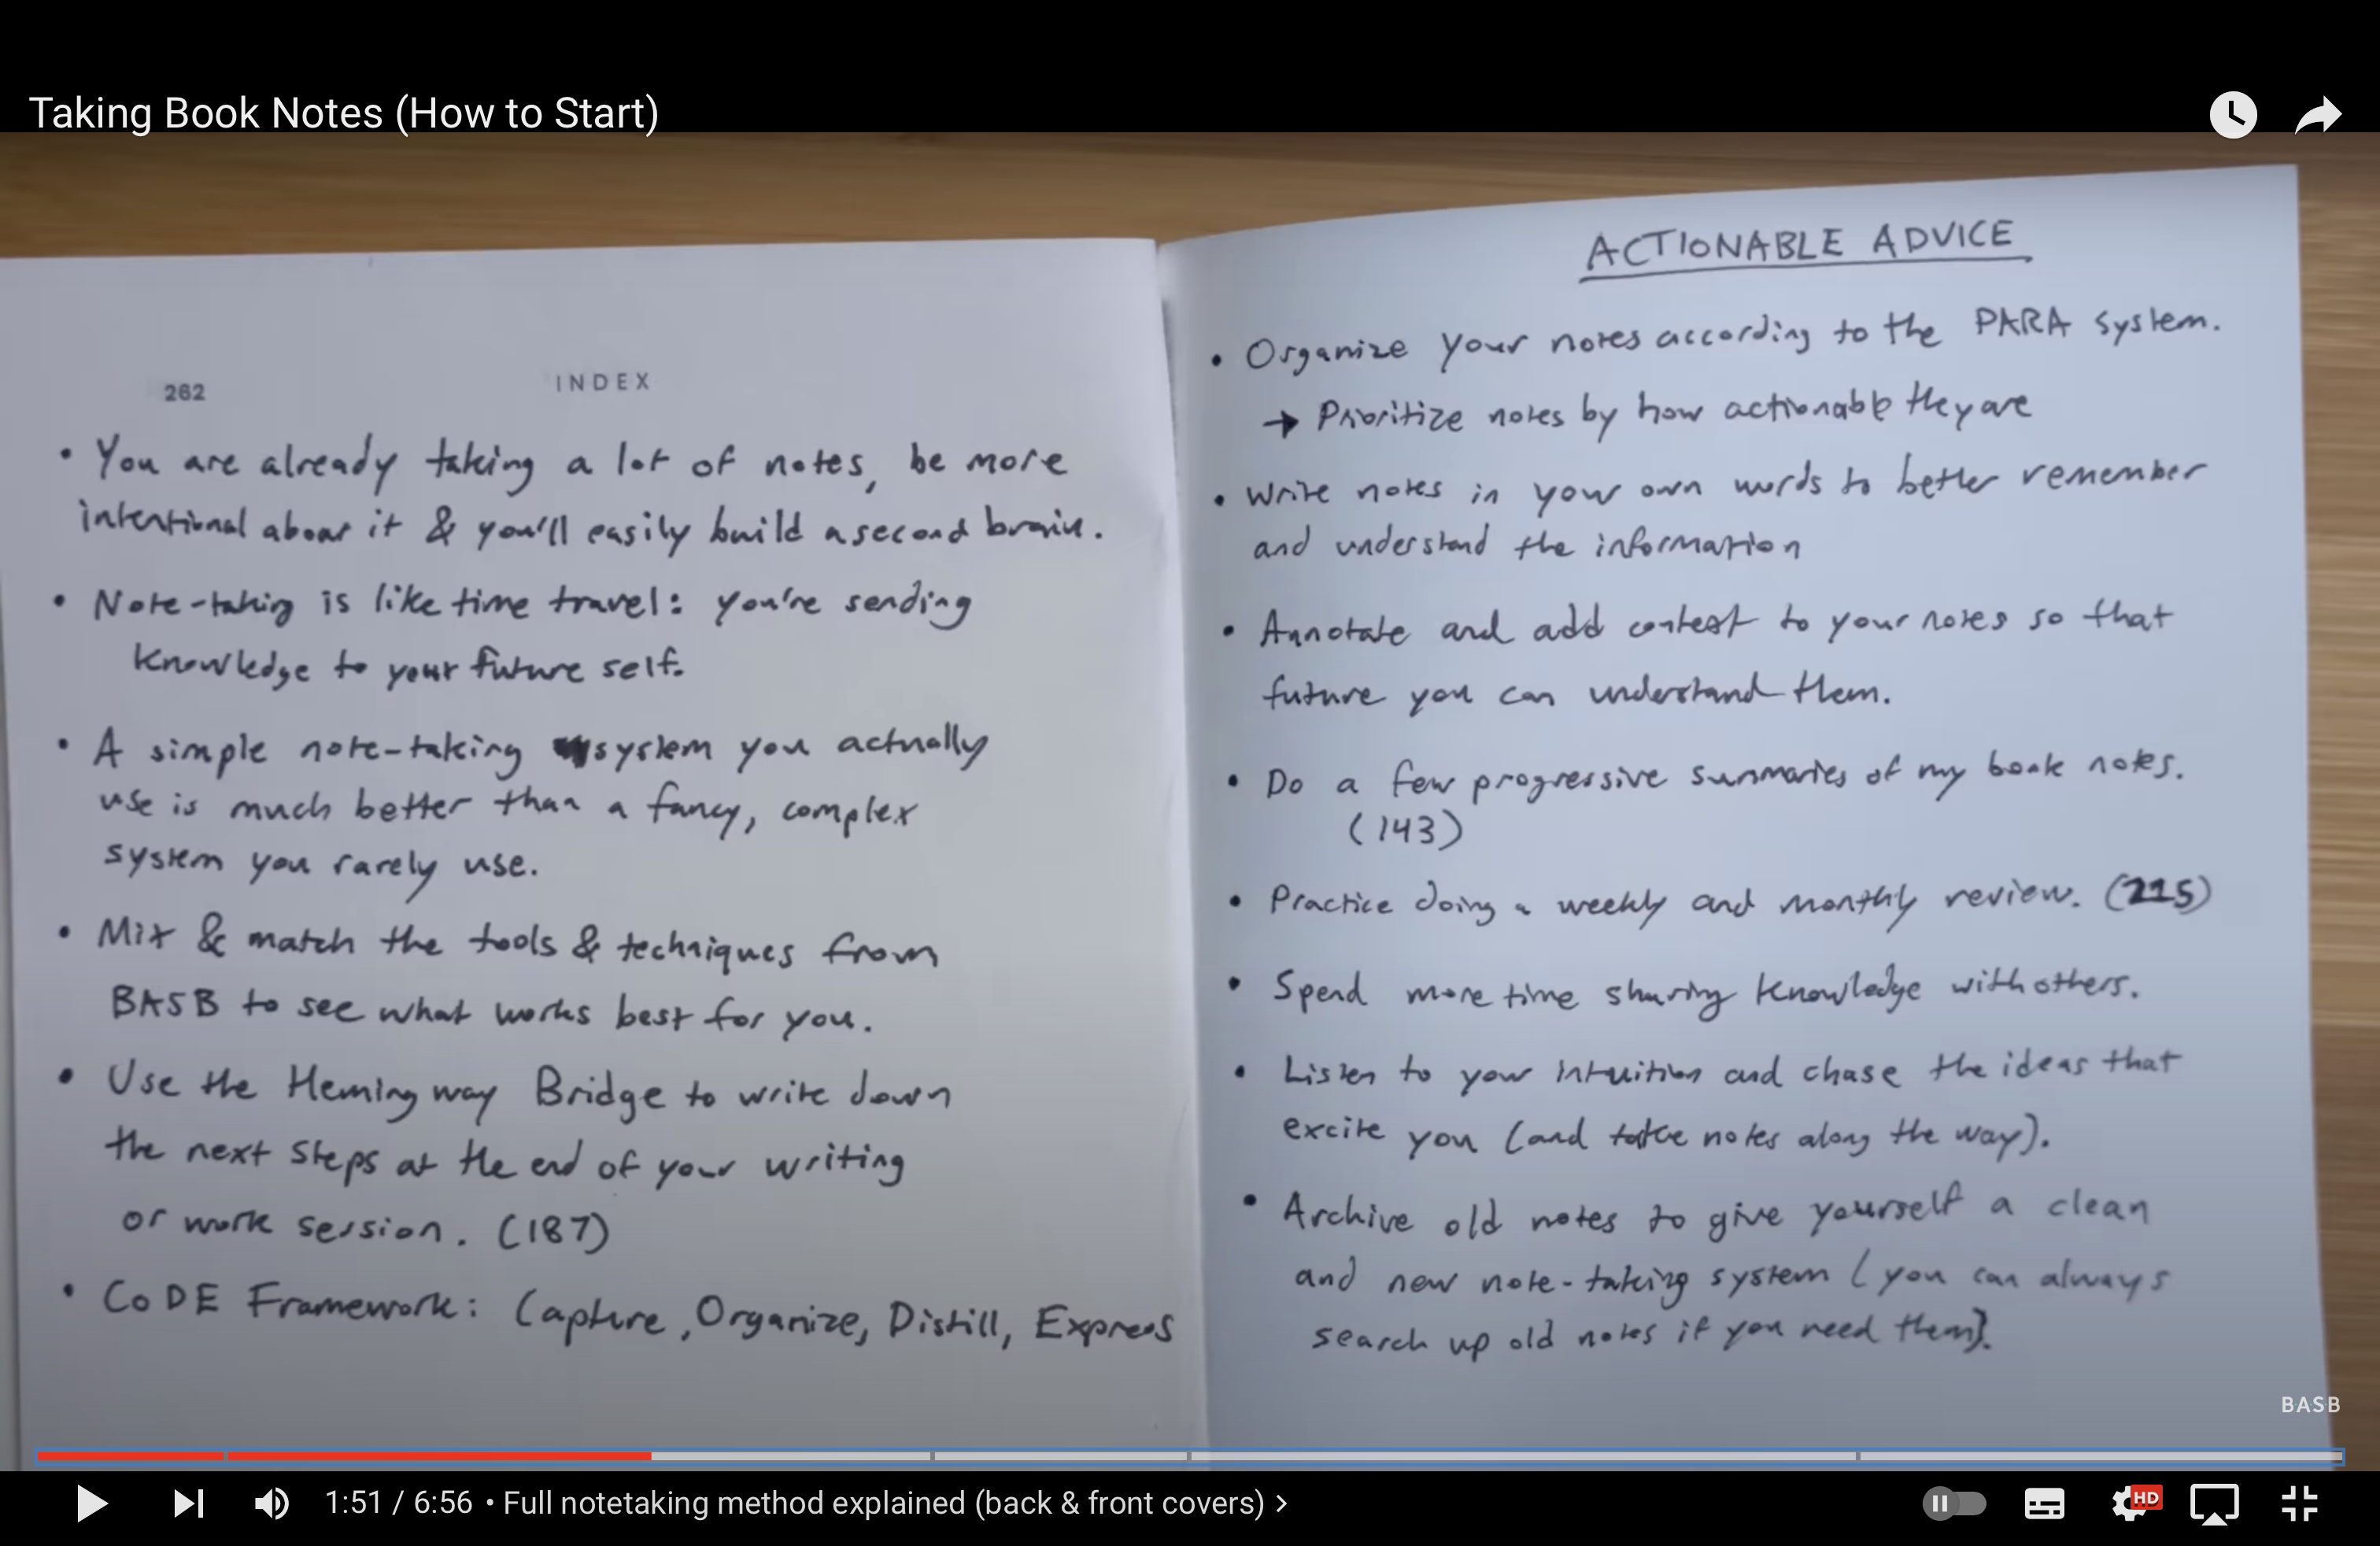 Taking Book Notes (How to Start)
262
INDEX
• You are already taking a lot of notes, be more
intentional about it & you'll easily build a second brain.
• Note-taking is like time travel: you're sending
knowledge to your future self.
• A simple note-taking system you actually
use is much better than a fancy, complex
system you rarely use.
• Mix & match the tools & techniques from
BASB to see what works best for you.
• Use the Hemingway Bridge to write down
the next steps at the end of your writing
or work session. (187)
• CODE Framework: Capture, Organize, Distill, Express
ACTIONABLE ADVICE
• Organize your notes according to the PARA system.
→ Prioritize notes by how actionable they are
• Write notes in your own words to better remember
and understand the information
• Annotate and add context to your notes so that
future you can understand them.
• Do a few progressive summaries of my book notes.
(143)
• Practice doing a weekly and monthly review. (215)
• Spend more time sharing knowledge with others.
• Listen to your intuition and chase the ideas that
excite you (and take notes along the way).
• Archive old notes to give yourself a clean
and new note-taking system (you can always
search up old notes if you need them).
BASB
1:51 / 6:56 • Full notetaking method explained (back & front covers) >
HD